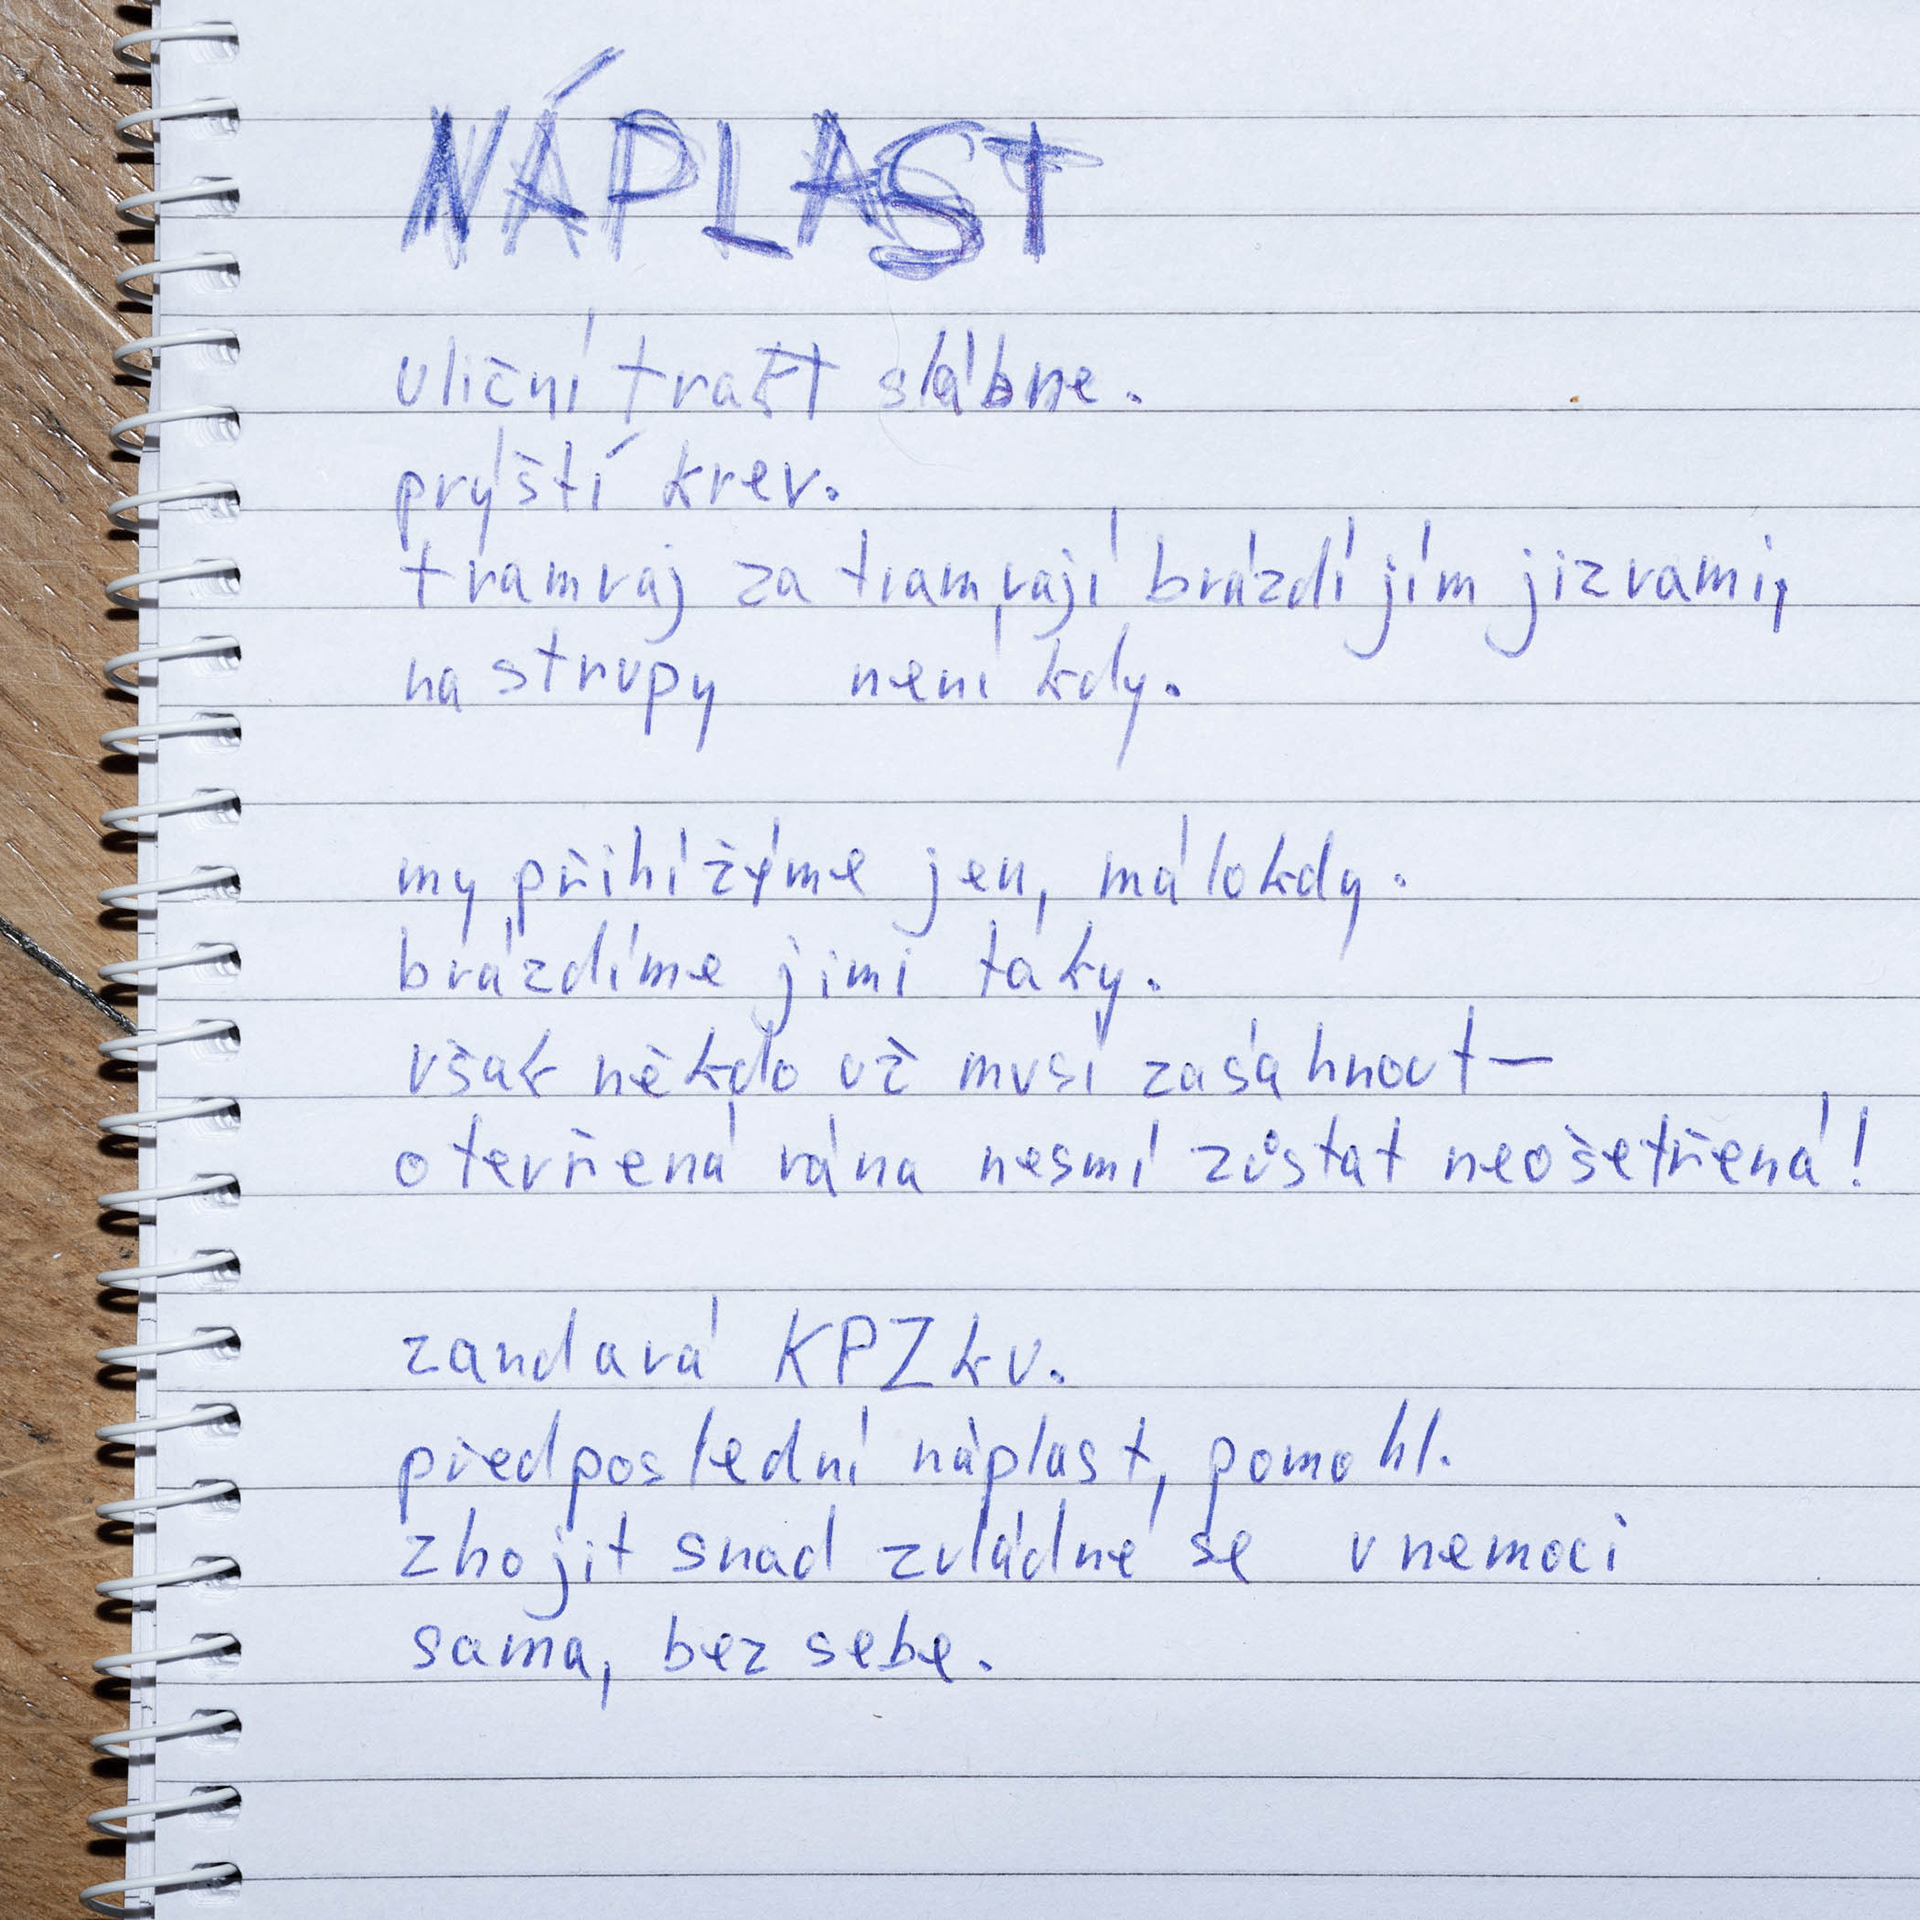 NÁPLAST
uliční trakt slábne.
prýští krev.
tramvaj za tramvají brázdí jím jizvami,
na strupy není kdy.
my přihlížíme jen, málokdy.
brázdíme jimi taky.
však někdo už musí zasáhnout—
otevřená rána nesmí zůstat neošetřená!
zandavá KPZku.
předposlední náplast, pomohl.
zhojit snad zvládne se v nemoci
sama, bez sebe.